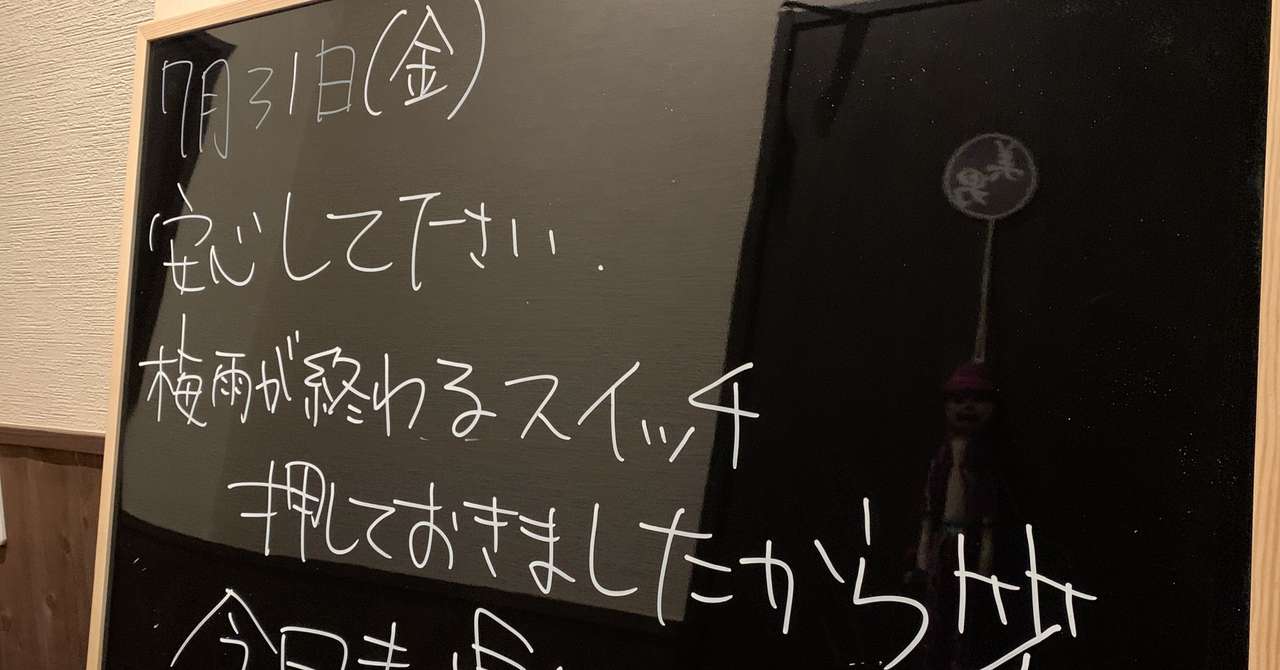 7月31日(金)
安心して下さい.
梅雨が終わるスイッチ
押しておきましたから
今日も